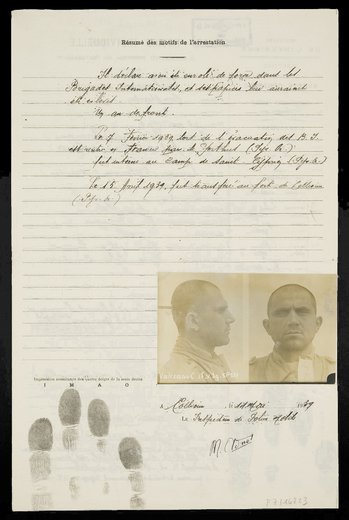 Résumé des motifs de l'arrestation.
Il déclare avoir été enrolé de force dans les
Brigades Internationales, et ses papiers lui auraient
été
Un an de front.
Le 7 Février 1939, lors de l'évacuation des B.I.
est entré en France par le Perthus (Pyr. Or.)
fut interné au Camp de Saint Cyprien (Pyr. Or.)
Le 15 Avril 1939, fut transféré au fort de Collioure
(Pyr. Or.)
Impression simultanée des quatre doigts de la main droite
I M A O
A Collioure le Mai 1939
Le Inspecteur de Police mobile
M.